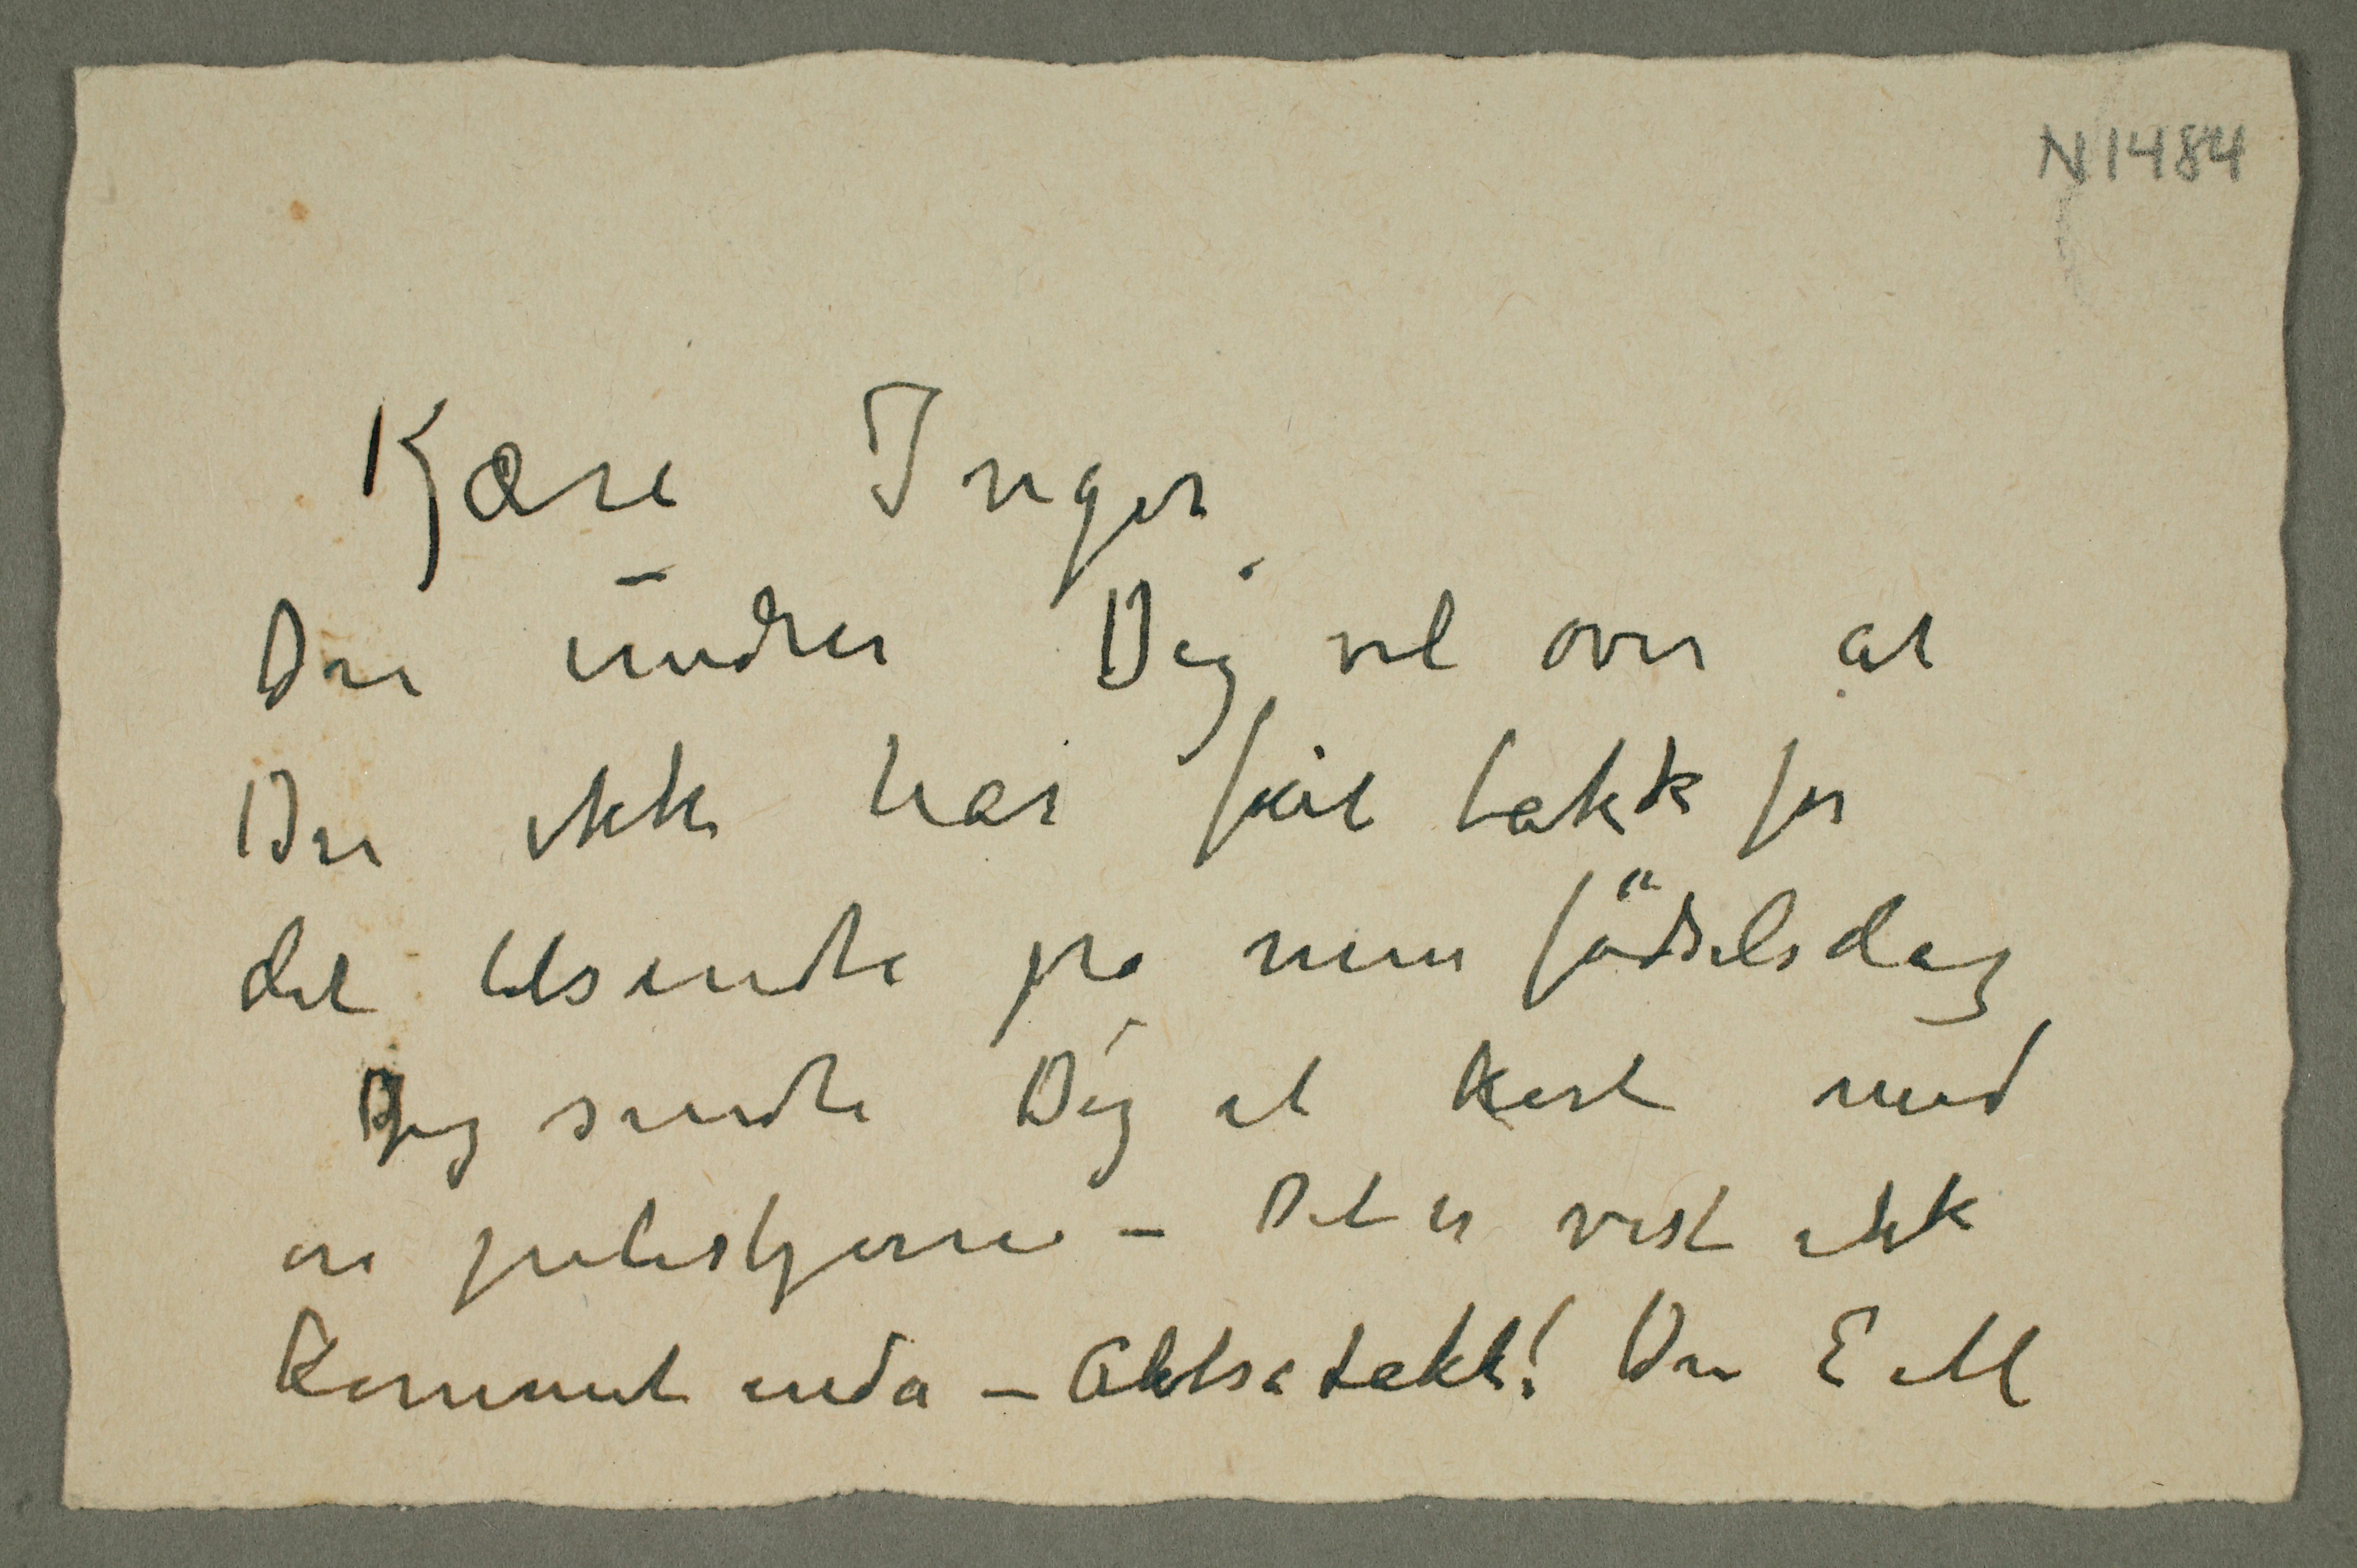 N 1484
Kjære Inger
Du undrer Dig vel over at
Du ikke har fåt takk for
det tilsendte på min födselsdag
Jeg sendte Dig et kort med
en julestjerne – Det er vist ikke
kommet enda – Altså takk! Din E M